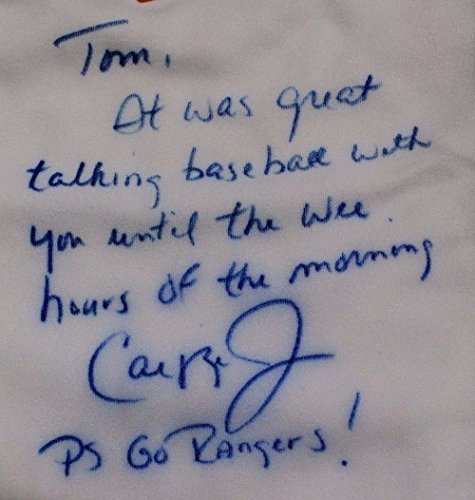 Tom,
It was great
talking baseball with
you until the wee
hours of the morning
Cal R J
PS Go Rangers!